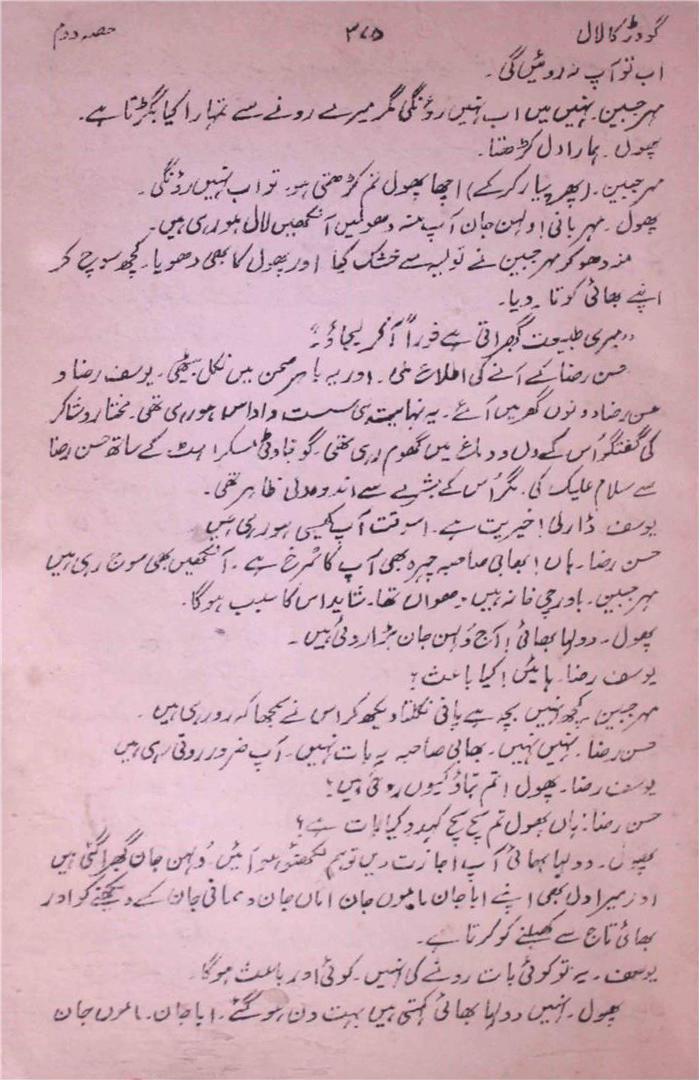 گودڑ کا لال ۳۷۵ حصہ دوم
اب تو آپ نہ روئیں گی۔
مہر جبین۔ نہیں میں اب نہیں روؤنگی مگر میرے رونے سے تمہارا کیا بگڑتا ہے۔
پھول۔ ہمارا دل کڑھتا۔
مہر جبین۔ (پھر پیار کر کے) اچھا پھول تم کڑھتی ہو۔ تو اب نہیں روؤنگی۔
پھول۔ مہربانی! دلہن جان آپ منہ دھولیں آنکھیں لال ہو رہی ہیں۔
منہ دھو کر مہر جبین نے تولیہ سے خشک کیا اور پھول کا بھی دھویا۔ کچھ سوچ کر
اپنے بھائی کو تار دیا۔
"میری طبیعت گھبراتی ہے فوراً آکر لیجاؤ"۔
حسن رضا کے آنے کی اطلاع ملی۔ اور یہ باہر صحن میں نکل بیٹھی۔ یوسف رضا و
حسن رضا دونوں گھر میں آئے۔ یہ نہایت ہی سست و اداس ہو رہی تھی۔ مختار و شاکر
کی گفتگو اُس کے دل و دماغ میں گھوم رہی تھی۔ گو بناوٹی مسکراہٹ کے ساتھ حسن رضا
سے سلام علیک کی۔ مگر اُس کے بشرے سے اندوہ دلی ظاہر تھی۔
یوسف۔ ڈارلی! خیریت ہے۔ اسوقت آپ کیسی ہو رہی ہیں
حسن رضا۔ ہاں! بھابی صاحبہ چہرہ بھی آپ کا سُرخ ہے۔ آنکھیں بھی سوج رہی ہیں
مہر جبین۔ باورچی خانہ میں دھواں تھا۔ شاید اس کا سبب ہوگا۔
پھول۔ دولہا بھائی! آج دُلہن جان بڑا روئی ہیں۔
یوسف رضا۔ ہائیں! کیا باعث؟
مہر جبین۔ کچھ نہیں بچہ ہے پانی نکلتا دیکھ کر اس نے سمجھا کہ رو رہی ہیں۔
حسن رضا۔ نہیں نہیں۔ بھابی صاحبہ یہ بات نہیں۔ آپ ضرور روتی رہی ہیں
یوسف رضا۔ پھول! تم بتاؤ کیوں روئی ہیں؟
حسن رضا۔ ہاں پھول تم سچ سچ کہدو کیا بات ہے؟
پھول۔ دولہا بھائی آپ اجازت دیں تو ہم لکھنؤ ہو آئیں۔ دُلہن جان گھبرا گئی ہیں
اور میرا دل بھی اپنے ابا جان ماموں جان اماں جان و ممانی جان کے دیکھنے کو اور
بھائی تاج سے کھیلنے کو کرتا ہے۔
یوسف۔ یہ تو کوئی بات رونے کی نہیں۔ کوئی اور باعث ہوگا۔
پھول۔ نہیں دولہا بھائی کہتی ہیں بہت دن ہو گئے۔ ابا جان۔ ماموں جان